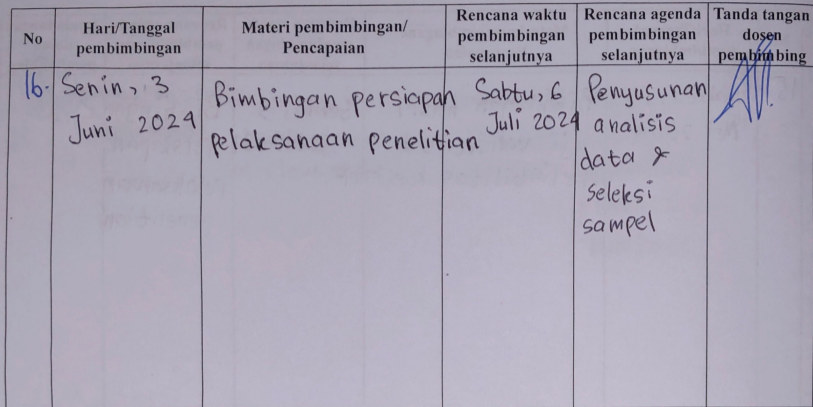 No
Hari/Tanggal
pembimbingan
Materi pembimbingan/
Pencapaian
Rencana waktu
pembimbingan
selanjutnya
Rencana agenda
pembimbingan
selanjutnya
Tanda tangan
dosen
pembimbing
16.
Senin, 3
Juni 2024
Bimbingan persiapan
pelaksanaan penelitian
Sabtu, 6
Juli 2024
Penyusunan
analisis
data &
seleksi
sampel